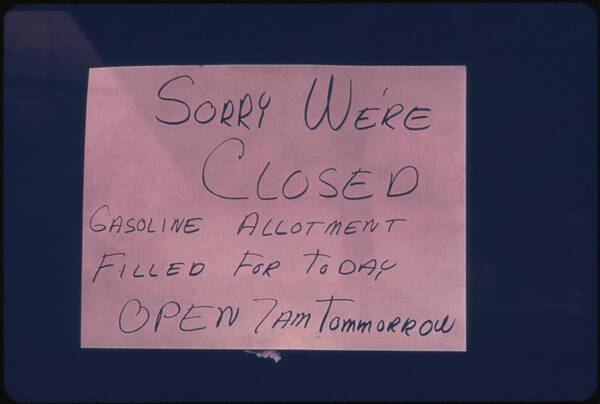 SORRY WE'RE
CLOSED
GASOLINE ALLOTMENT
FILLED FOR TODAY
OPEN 7AM TOMMORROW